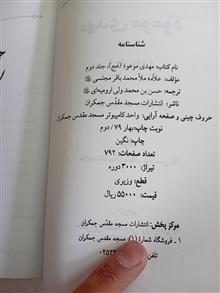 شناسنامه
نام کتاب: مهدی موعود (عج)، جلد دوم
مؤلف: علامه ملا محمد باقر مجلسی
ترجمه: حسن بن محمد ولی ارومیه‌ای
ناشر: انتشارات مسجد مقدّس جمکران
حروف چینی و صفحه آرایی: واحد کامپیوتر مسجد مقدّس جمکران
نوبت چاپ: بهار ۷۹ / دوم
چاپ: نگین
تعداد صفحات: ۷۹۲
تیراژ: ۳۰۰۰ دوره
قطع: وزیری
قیمت: ۵۵۰۰۰ ریال
مرکز پخش: انتشارات مسجد مقدّس جمکران
۱ ـ فروشگاه شمارهٔ (۱): مسجد مقدّس جمکران
تلفن